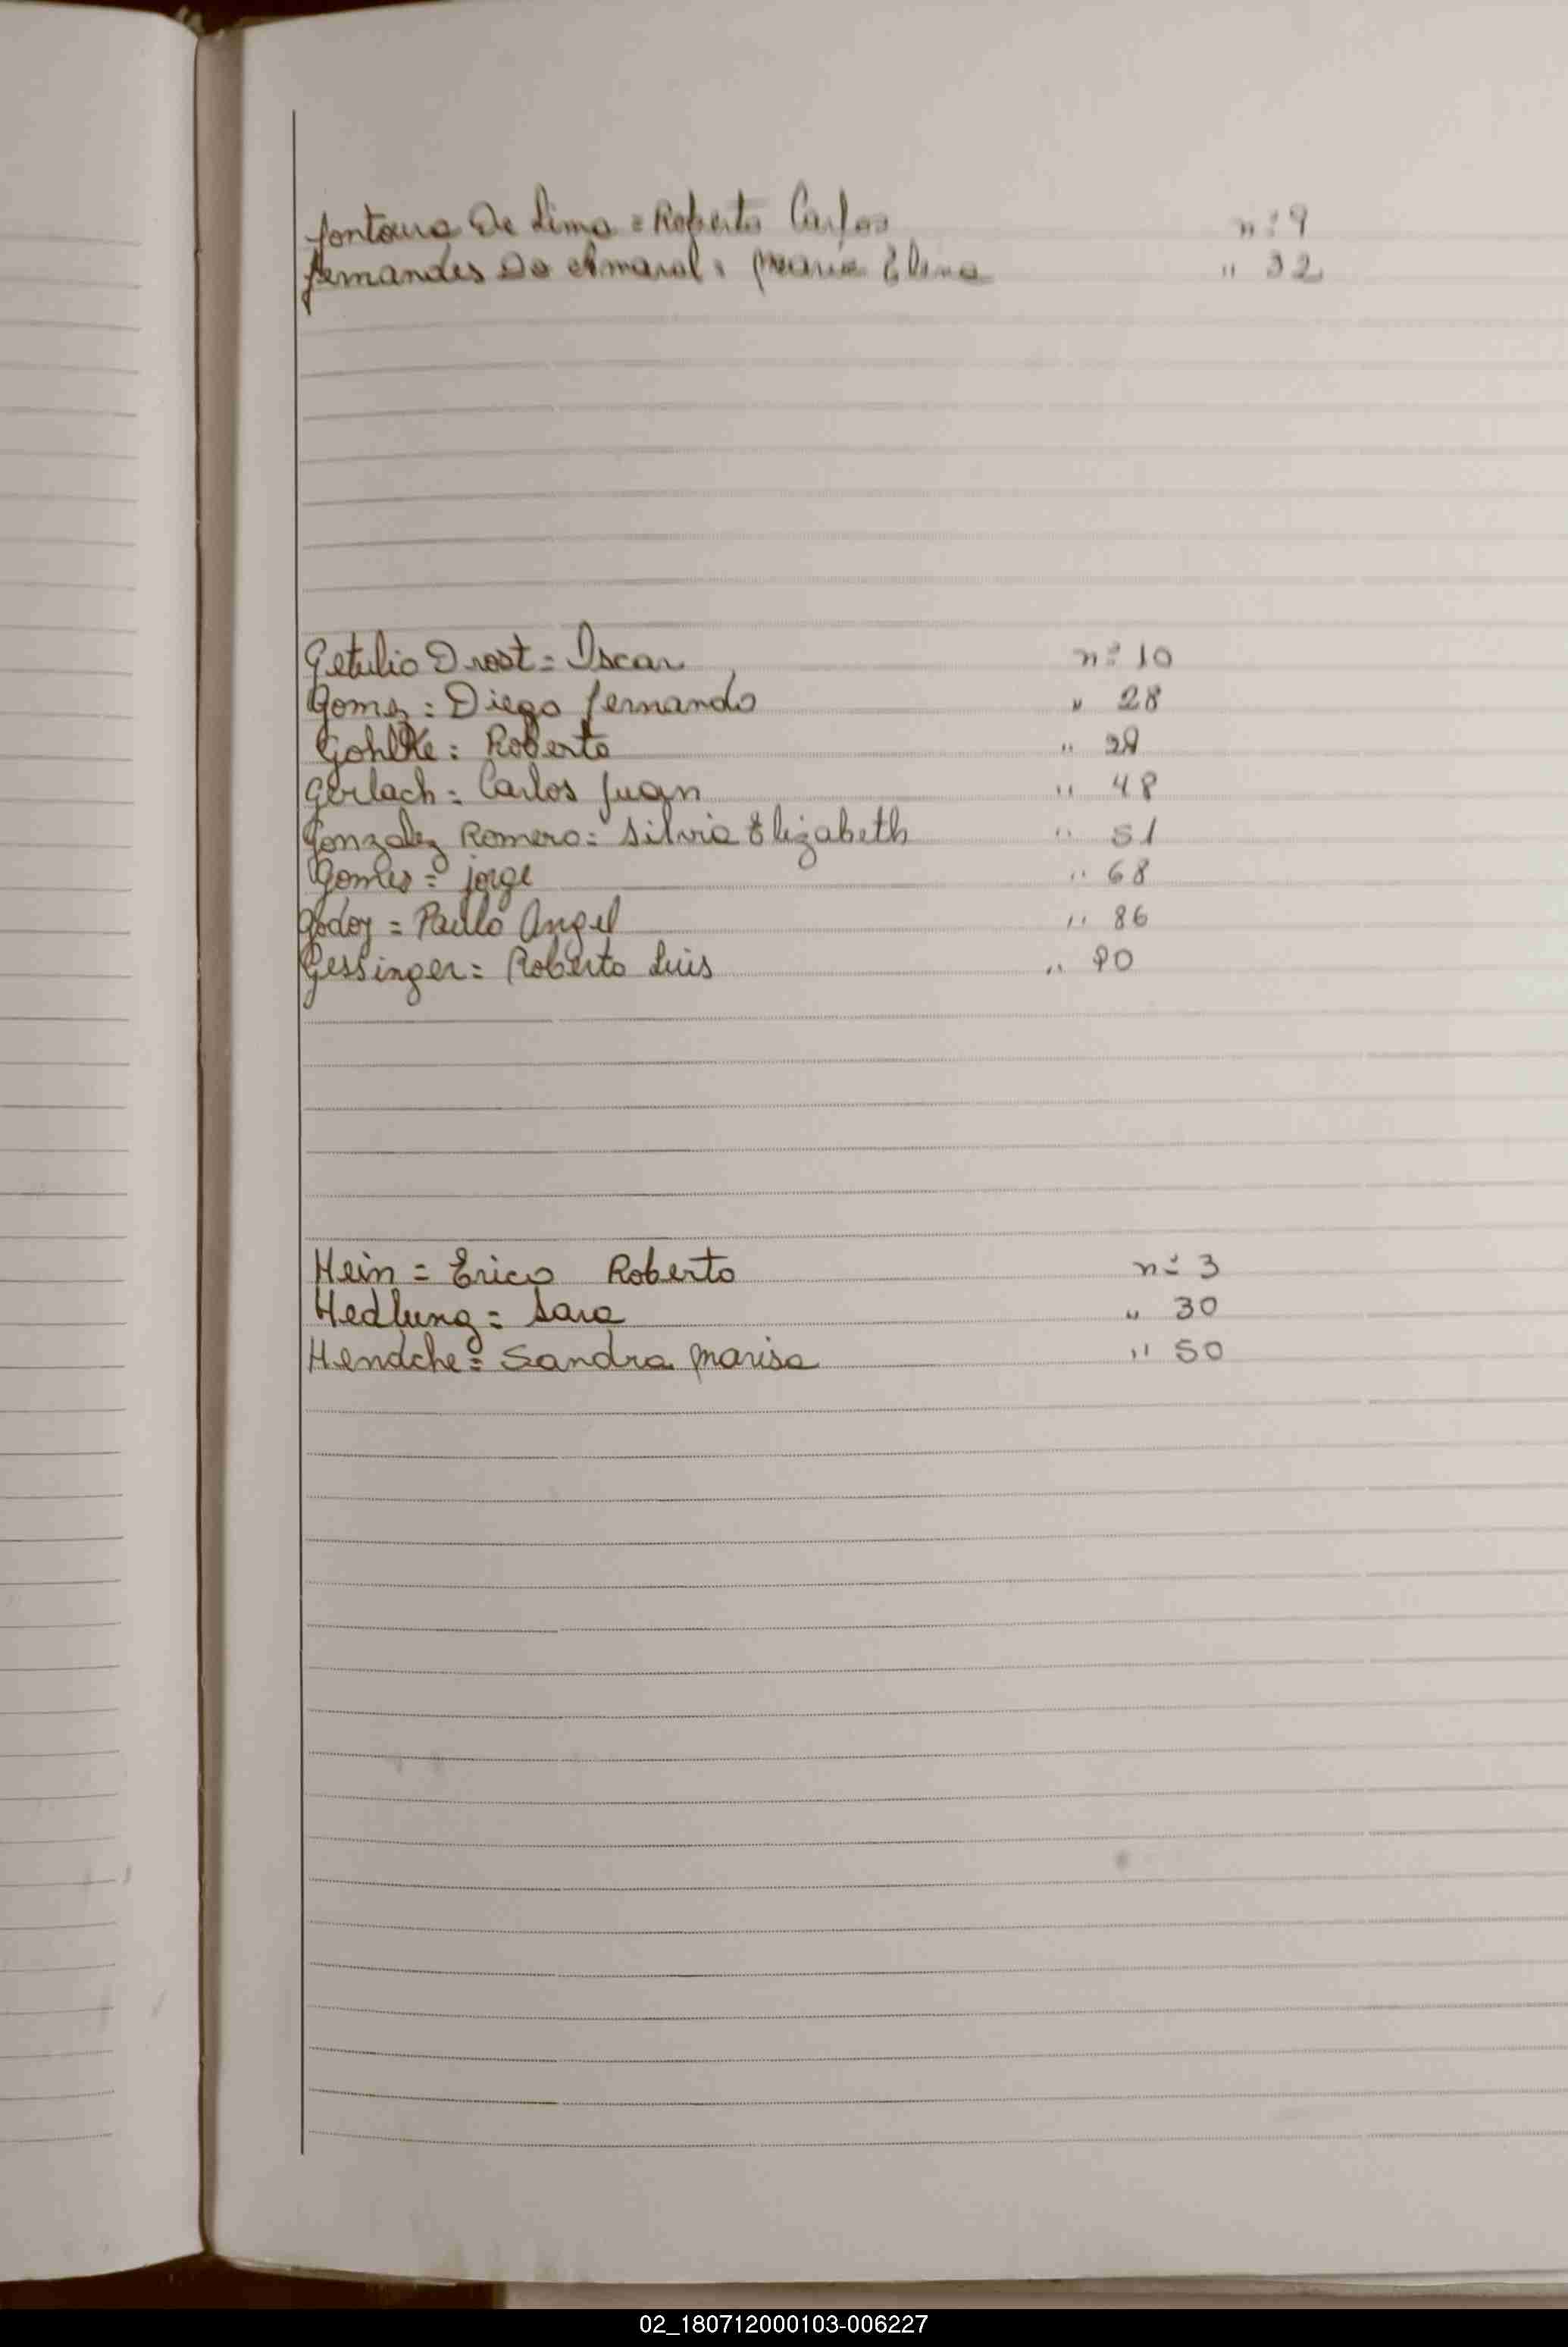 Fontoura De Lima = Roberto Carlos nº 9
Fernandes Do Amaral = Maria Elena " 32
Getulio Drost = Oscar nº 10
Gomez = Diego Fernando " 28
Gohlke = Roberto " 29
Gerlach = Carlos Juan " 48
Gonzalez Romero = Silvia Elizabeth " 51
Gomes = jorge " 68
Godoy = Paulo Angel " 86
Gessinger = Roberto Luis " 90
Hein = Erico Roberto nº 3
Hedlung = Sara " 30
Hendche = Sandra Marisa " 50
02_180712000103-006227